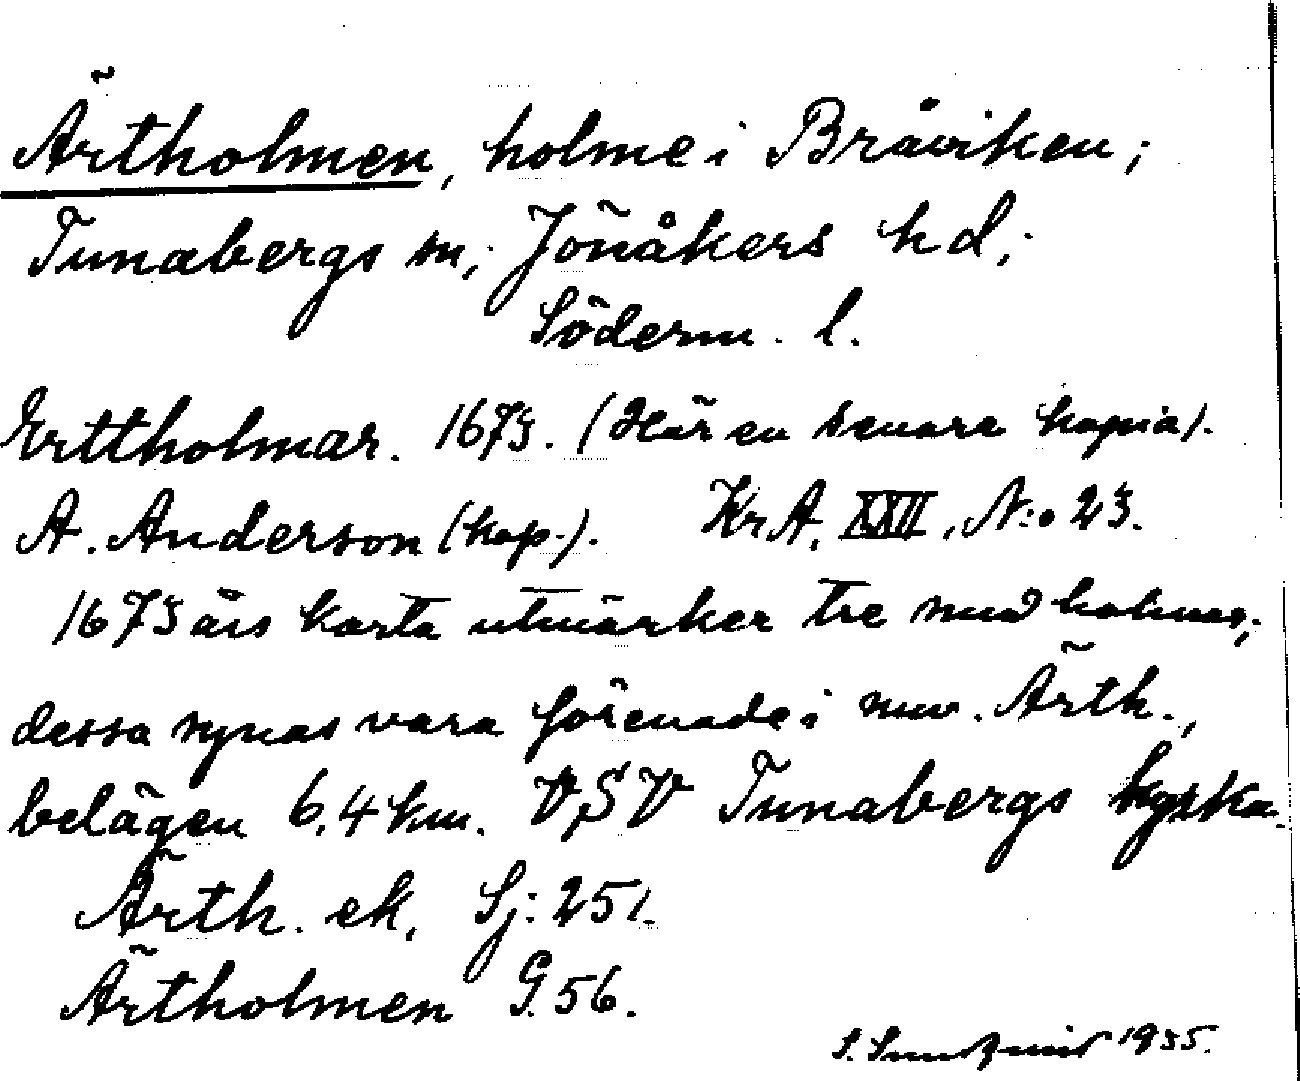 Ärtholmen, holme i Bråviken;
Tunabergs sn; Jönåkers hd;
Söderm. l.
Erttholmar. 1673. (Här en senare kopia).
A. Anderson (kop.). KrA, XXII, N:o 23.
1673 års karta utmärker tre små holmar;
dessa synas vara förenade i nuv. Ärth.,
belägen 6,4 km. VSV Tunabergs kyrka.
Ärth. ek. Sj: 251.
Ärtholmen G. 56.
S. 1935.